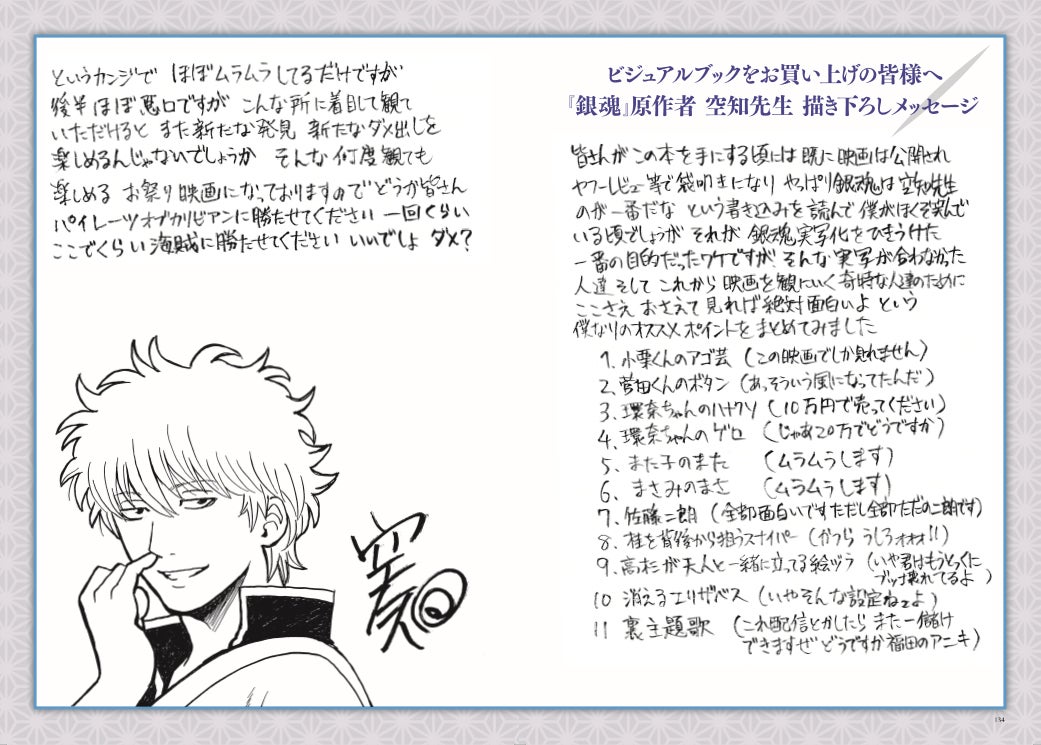 ビジュアルブックをお買い上げの皆様へ
『銀魂』原作者 空知先生 描き下ろしメッセージ
皆さんがこの本を手にする頃には 既に映画は公開され
ヤフーレビュー等で袋叩きになり やっぱり銀魂は空知先生
のが一番だな という書き込みを読んで 僕がほくそ笑んで
いる頃でしょうが それが 銀魂実写化をひきうけた
一番の目的だったワケですが そんな実写が合わなかった
人達 そして これから映画を観にいく奇特な人達のために
ここさえ おさえて見れば絶対面白いよ という
僕なりのオススメポイントをまとめてみました
1、小栗くんのアゴ芸 (この映画でしか見れません)
2、菅田くんのボタン (あっそういう風になってたんだ)
3、環奈ちゃんのハナクソ (10万円で売ってください)
4、環奈ちゃんのゲロ (じゃあ20万でどうですか)
5、また子のまた (ムラムラします)
6、まさみのまさ (ムラムラします)
7、佐藤二朗 (全部面白いです ただし全部ただの二朗です)
8、桂を背後から狙うスナイパー (かつら うしろォォォ!!)
9、高杉が天人と一緒に立ってる絵ヅラ (いや君はもうとっくに
ブッ壊れてるよ)
10 消えるエリザベス (いやそんな設定ねェよ)
11 裏主題歌 (これ配信とかしたら また一儲け
できますぜ どうですか福田のアニキ)
というカンジで ほぼムラムラしてるだけですが
後半ほぼ悪口ですが こんな所に着目して観て
いただけると また新たな発見 新たなダメ出しを
楽しめるんじゃないでしょうか そんな何度観ても
楽しめる お祭り映画になっておりますので どうか皆さん
パイレーツオブカリビアンに勝たせてください 一回くらい
ここでくらい海賊に勝たせてください いいでしょ ダメ?
空知
134